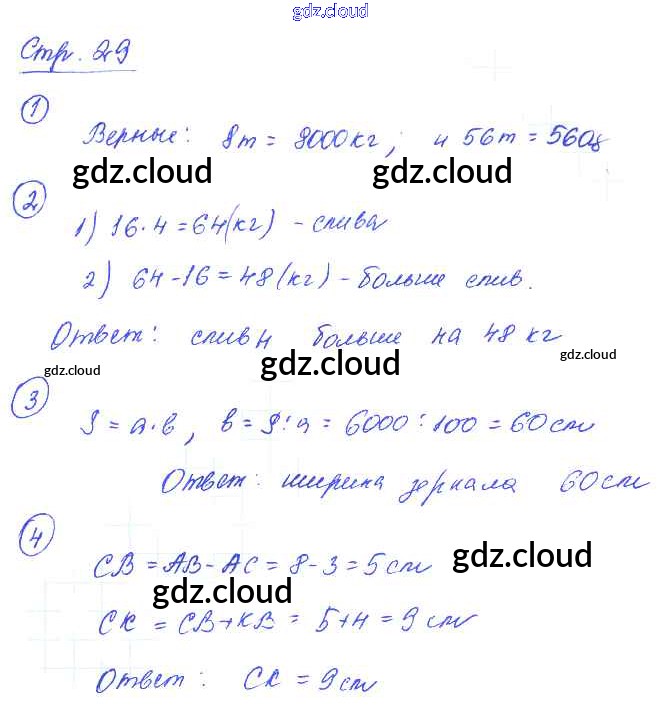 gdz.cloud
Стр. 29
1
Верные: 8т = 8000кг; и 56т = 560ц
gdz.cloud gdz.cloud
2
1) 16·4=64(кг) - слива
2) 64-16=48(кг) - больше слив.
Ответ: слив больше на 48 кг
gdz.cloud gdz.cloud gdz.cloud
3
S = а·в, в = S:а = 6000:100 = 60см
Ответ: ширина зеркала 60см
gdz.cloud
4
СВ = АВ-АС = 8-3 = 5см
gdz.cloud gdz.cloud
СК = СВ+КВ = 5+4 = 9см
Ответ: СК = 9см